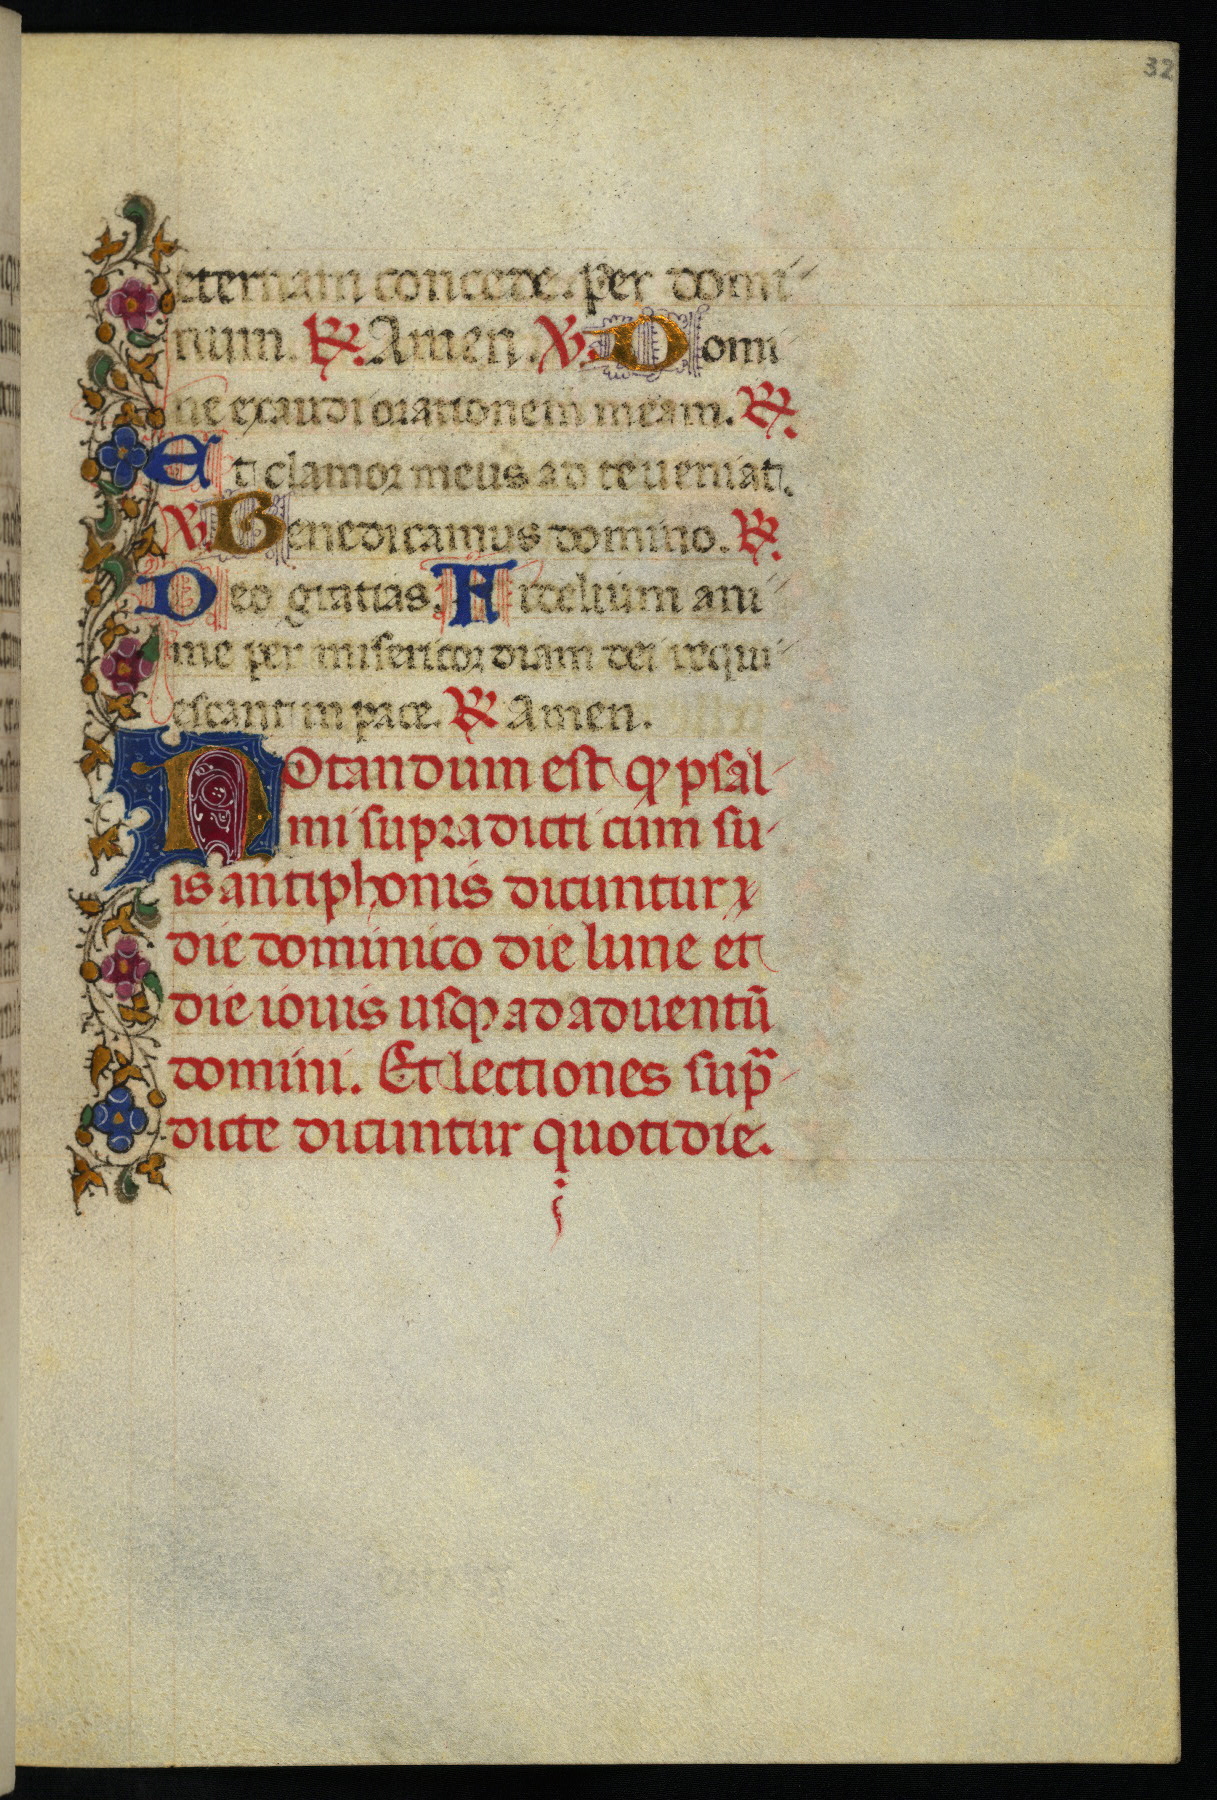 32
eternam concede. per domi
num. ℟. Amen. ℣. Domi
ne exaudi orationem meam. ℟.
Et clamor meus ad te ueniat.
℣. Benedicamus domino. ℟.
Deo gratias. Fidelium ani
me per misericordiam dei requi
escant in pace. ℟ Amen.
NOtandum est ꝙ psal
mi supradicti cum su
is antiphonis dicuntur
die dominico die lune et
die iouis usqꝫ ad aduentū
domini. Et lectiones sup̃
dicte dicuntur quotidie.